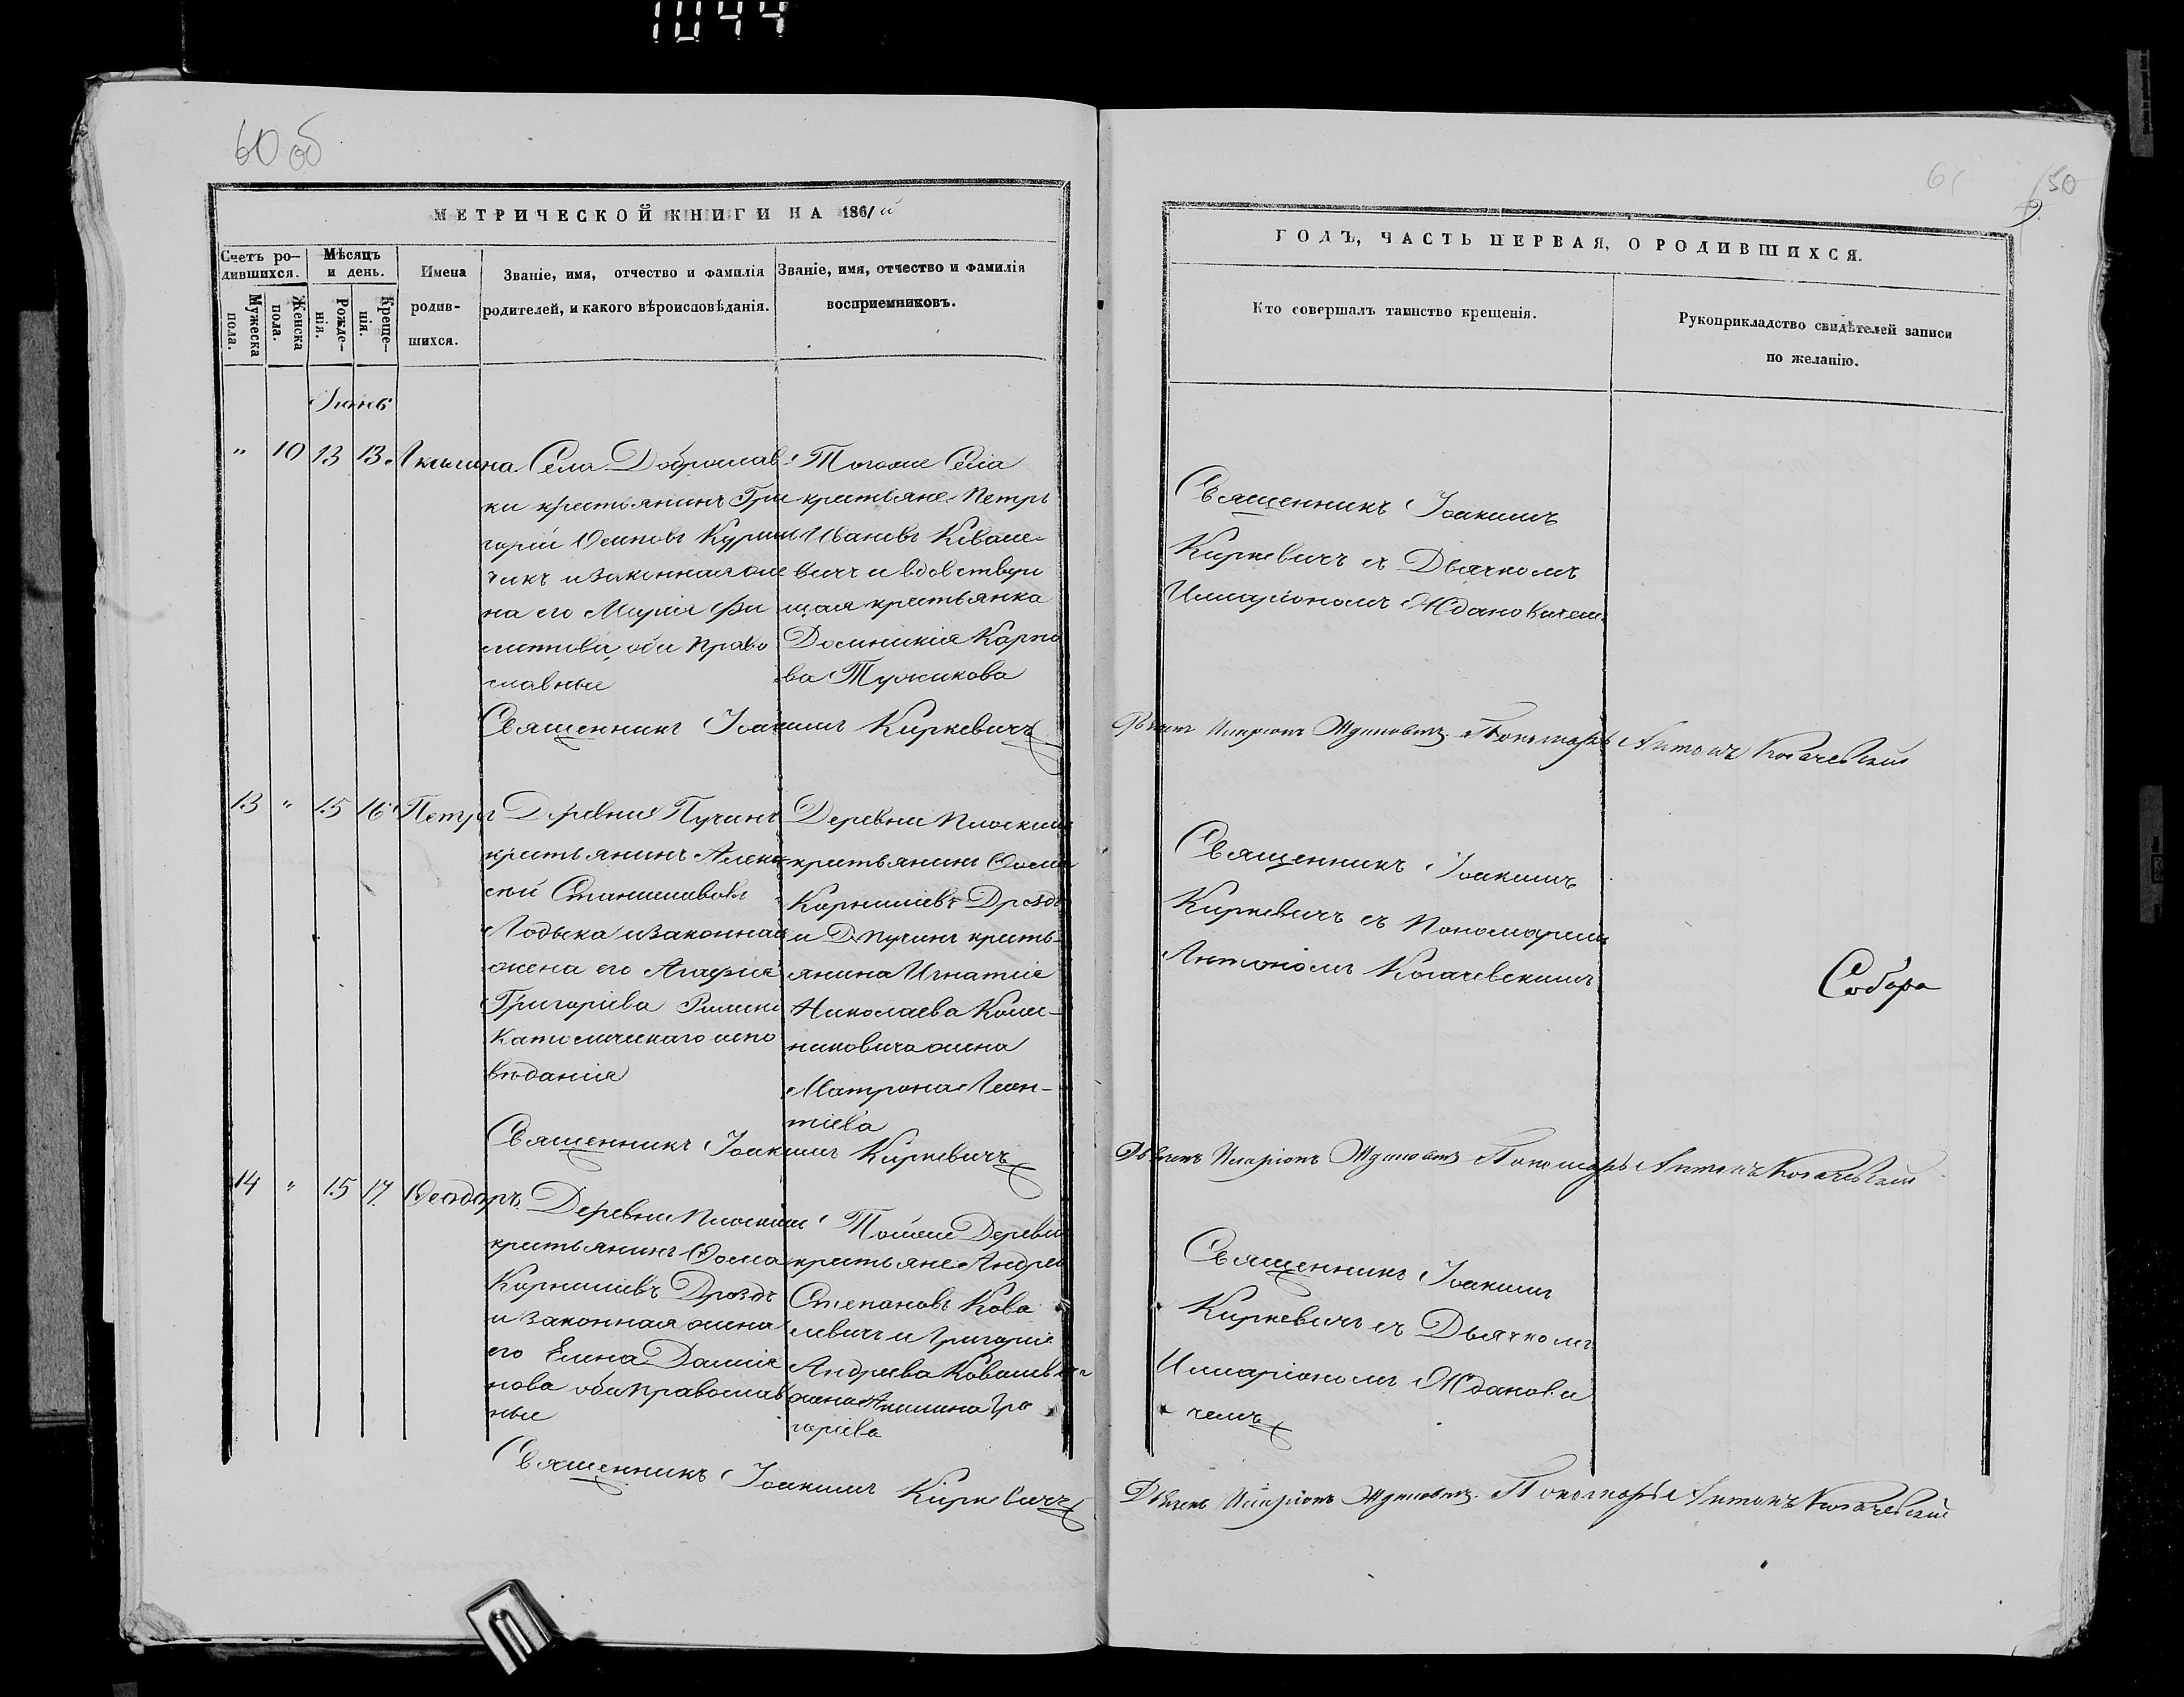 1044
60 об
МЕТРИЧЕСКОЙ КНИГИ НА 1861й
Счетъ ро-
дившихся.
Мужеска
пола.
Женска
пола.
Мѣсяцъ
и день.
Рожде-
нія.
Креще-
нія.
Имена
родив-
шихся.
Званіе, имя, отчество и фамилія
родителей, и какого вѣроисповѣданія.
Званіе, имя, отчество и фамилія
восприемниковъ.
Іюнь
" 10 13 13 Акилина
Села Доброслав
ки крестьянинъ Гри
горій Осиповъ Курил
чикъ и законная же
на его Марія Фи
липова, оба Право
славные
Тогоже Села
крестьяне Петръ
Ивановъ Ковале-
вичъ и вдовствую
щая крестьянка
Доминикія Карпо
ва Тужикова
Священникъ Іоакимъ Киркевичъ
13 " 15 16 Петръ
Деревни Пучинъ
крестьянинъ Алек
сѣй Станиславовъ
Лодыка и законная
жена его Агафія
Григоріева Римско
Католическаго испо
вѣданія
Деревни Плоскини
крестьянинъ Фома
Корниліевъ Дроздъ
и Д. Пучинъ кресть-
янина Игнатія
Николаева Колес-
никовича жена
Матрона Леон-
тіева
Священникъ Іоакимъ Киркевичъ
14 " 15 17 Феодоръ
Деревни Плоскини
крестьянинъ Фома
Корниліевъ Дроздъ
и законная жена
его Елена Даміа
нова оба Православ
ные
Тойже Деревни
крестьяне Андрей
Степановъ Кова
левичъ и Григорія
Андреева Ковалевича
жена Акилина Гри
горіева
Священникъ Іоакимъ Киркевичъ
50
ГОДЪ, ЧАСТЬ ПЕРВАЯ, О РОДИВШИХСЯ.
Кто совершалъ таинство крещенія.
Рукоприкладство свидѣтелей записи
по желанію.
Священникъ Іоакимъ
Киркевичъ съ Дьячкомъ
Илларіономъ Ждановичемъ
Дьячекъ Иларіонъ Ждановичъ. Пономарь Антонъ Когачевскій
Священникъ Іоакимъ
Киркевичъ съ Пономаремъ
Антономъ Когачевскимъ
Собора
Дьячекъ Иларіонъ Ждановичъ Пономарь Антонъ Когачевскій
Священникъ Іоакимъ
Киркевичъ съ Дьячкомъ
Илларіономъ Жданови
чемъ
Дьячекъ Иларіонъ Ждановичъ. Пономарь Антонъ Когачевскій